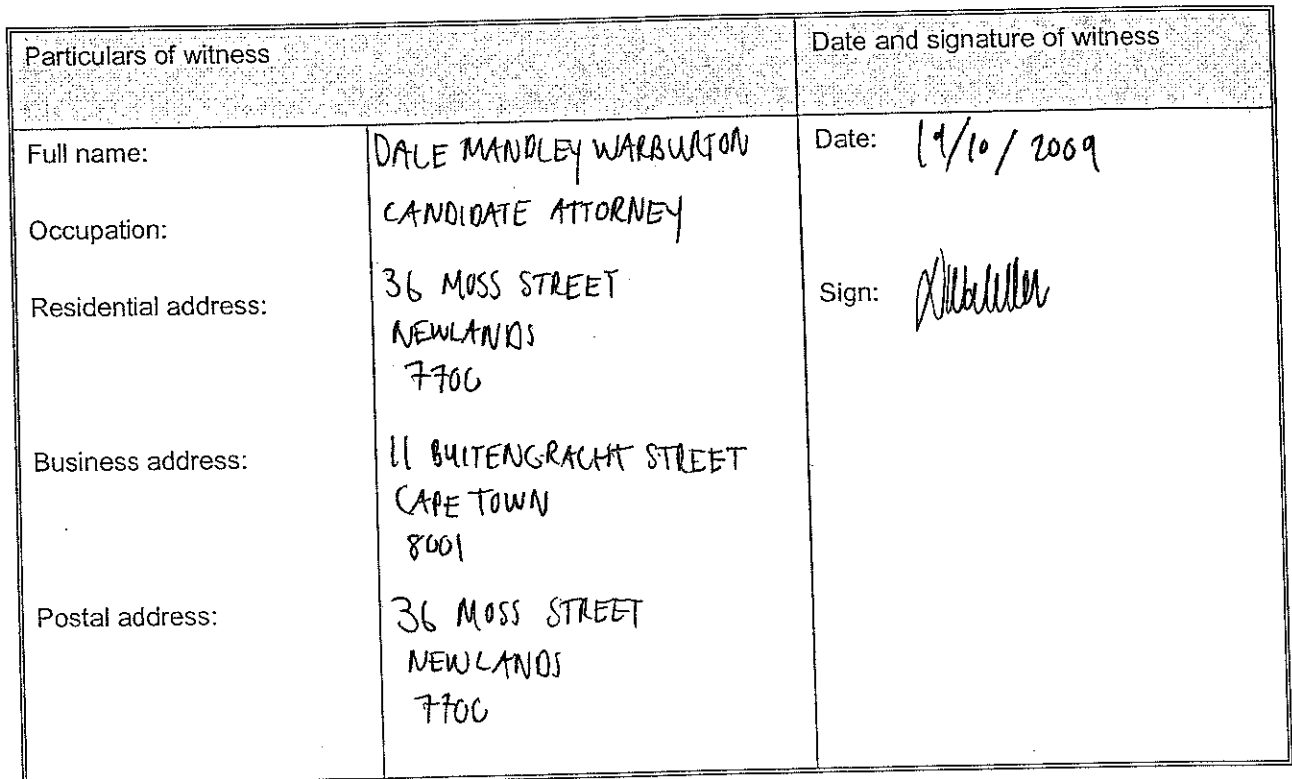 Particulars of witness
Date and signature of witness
Full name: DALE MANDLEY WARBURTON
Occupation: CANDIDATE ATTORNEY
Residential address: 36 MOSS STREET
NEWLANDS
7700
Business address: 11 BUITENGRACHT STREET
CAPE TOWN
8001
Postal address: 36 MOSS STREET
NEWLANDS
7700
Date: 19/10/2009
Sign: